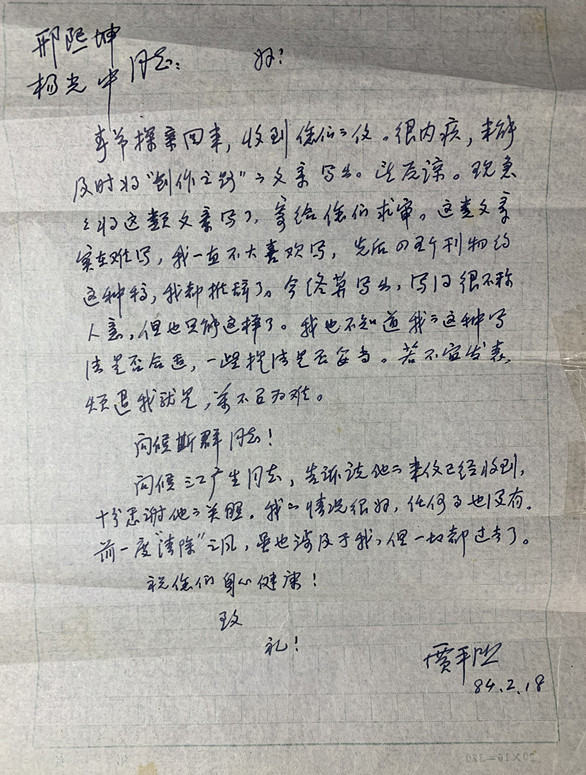 邢熙坤
杨光中 同志: 好!
春节探亲回来,收到您们的信。很内疚,未能
及时将"创作之路"之文章写出。望友谅。现急
急将这类文章写了,寄给你们求审。这类文章
实在难写,我一直不大喜欢写,先后四五个刊物约
这种稿,我都推辞了。今终算写出,写得很不称
人意,但也只能这样了。我也不知道我的这种写
法是否合适,一些提法是否妥当。若不宜发表,
烦退我就是,万不可为难。
问候斯群同志!
问候江广生同志,告诉说他的来信已经收到,
十分感谢他的关照。我的情况很好,任何事也没有。
前一度"清除"之风,虽也涉及于我,但一切都过去了。
祝您们身心健康!
致
礼!
贾平凹
84.2.18
20×19=380